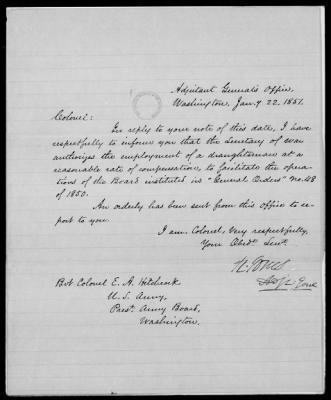 Adjutant General's Office,
Washington, Jan'y 22. 1851.
Colonel:
In reply to your note of this date, I have
respectfully to inform you that the Secretary of War
authorizes the employment of a draughtsman at a
reasonable rate of compensation, to facilitate the opera-
tions of the Board instituted in "General Orders" No. 48
of 1850.
An orderly has been sent from this office to re-
port to you.
I am, Colonel, Very respectfully,
Your Obedt. Servt.
R. Jones
Adjt. Genl.
Bvt Colonel E. A. Hitchcock
U. S. Army,
Prest. Army Board,
Washington.